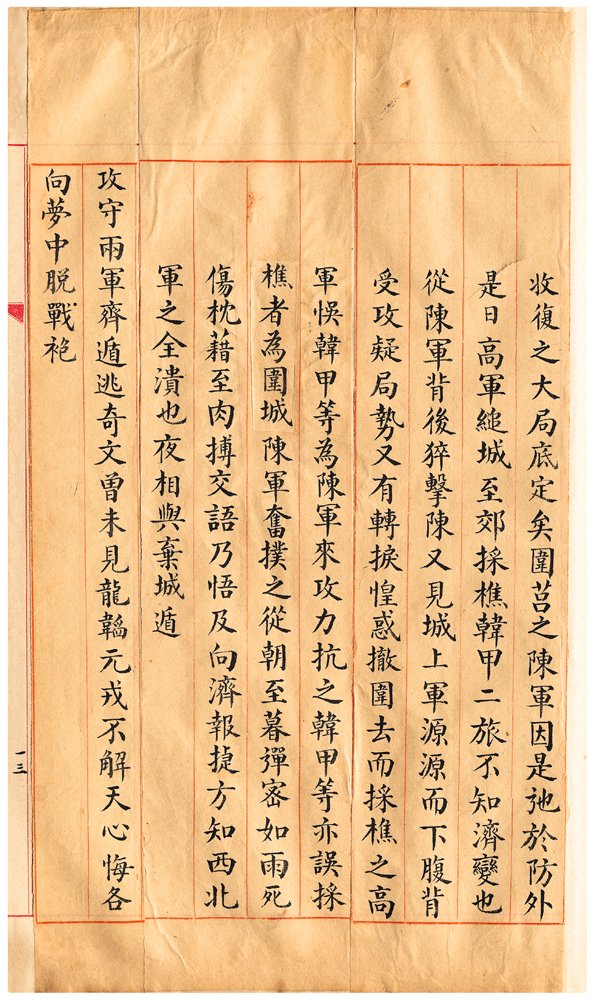 收復之大局底定矣圍莒之陳軍因是弛於防外
是日高軍縋城至郊採樵韓甲二旅不知濟變也
從陳軍背後猝擊陳又見城上軍源源而下腹背
受攻疑局勢又有轉捩惶惑撤圍去而採樵之高
軍悞韓甲等為陳軍來攻力抗之韓甲等亦誤採
樵者為圍城陳軍奮撲之從朝至暮彈密如雨死
傷枕藉至肉搏交語乃悟及向濟報捷方知西北
軍之全潰也夜相與棄城遁
攻守兩軍齊遁逃奇文曾未見龍韜元戎不解天心悔各
向夢中脫戰袍
一三